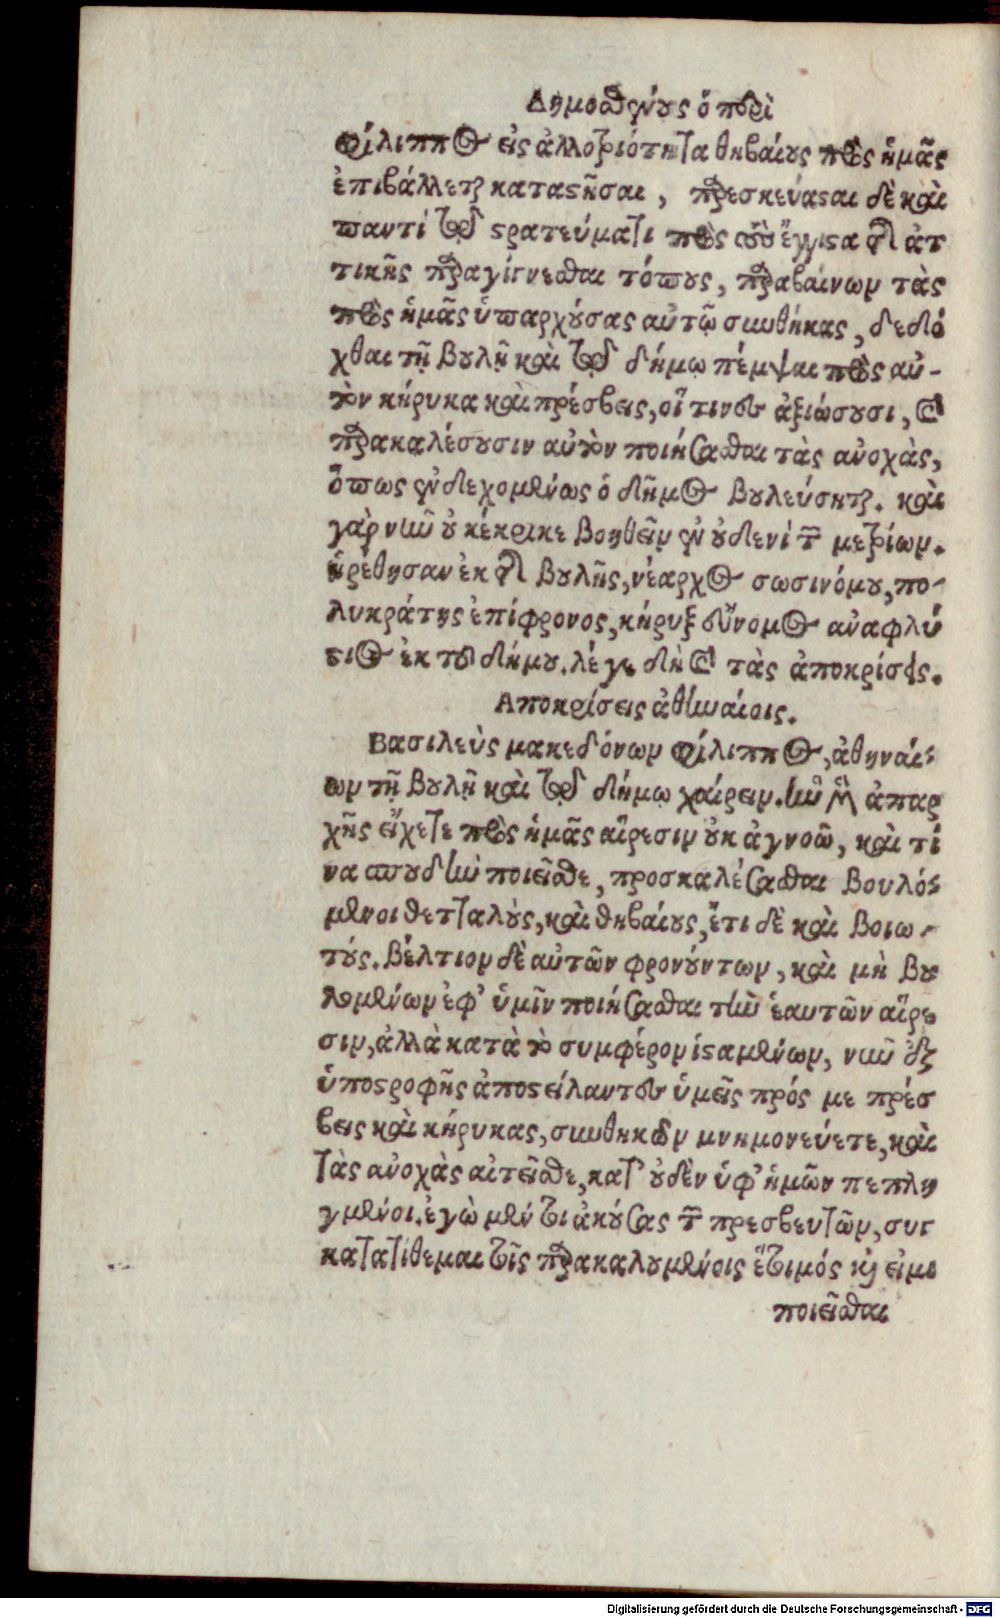 Δημοσθένους ὁ περὶ
Φίλιππος εἰς ἀλλοτριότητα θηβαίους πρὸς ἡμᾶς
ἐπιβάλλεται καταστῆσαι, παρεσκεύασαι δὲ καὶ
παντὶ τῷ στρατεύματι πρὸς τοὺς ἔγγιστα τῆς ἀτ
τικῆς παραγίγνεσθαι τόπους, παραβαίνων τὰς
πρὸς ἡμᾶς ὑπαρχούσας αὐτῷ συνθήκας, δεδό
χθαι τῇ βουλῇ καὶ τῷ δήμῳ πέμψαι πρὸς αὐ-
τὸν κήρυκα καὶ πρέσβεις, οἵ τινες ἀξιώσουσι, καὶ
παρακαλέσουσιν αὐτὸν ποιήσασθαι τὰς ἀνοχὰς,
ὅπως ἐνδεχομένως ὁ δῆμος βουλεύσηται. καὶ
γὰρ νῦν οὐ κέκρικε βοηθεῖν ἐν οὐδενὶ τῶν μετρίων.
ᾑρέθησαν ἐκ τῆς βουλῆς, νέαρχος σωσινόμου, πο-
λυκράτης ἐπίφρονος, κήρυξ εὔνομος ἀναφλύ
στιος ἐκ τοῦ δήμου. λέγε δὴ καὶ τὰς ἀποκρίσεις.
Αποκρίσεις ἀθηναίοις.
Βασιλεὺς μακεδόνων φίλιππος, ἀθηναί-
ων τῇ βουλῇ καὶ τῷ δήμῳ χαίρειν. ἣν μὲν ἀπαρ
χῆς εἴχετε πρὸς ἡμᾶς αἵρεσιν οὐκ ἀγνοῶ, καὶ τί
να σπουδὴν ποιεῖσθε, προσκαλέσασθαι βουλό-
μενοι θετταλοὺς, καὶ θηβαίους, ἔτι δὲ καὶ βοιω-
τούς. βέλτιον δὲ αὐτῶν φρονούντων, καὶ μὴ βου
λομένων ἐφ' ὑμῖν ποιήσασθαι τὴν ἑαυτῶν αἵρε
σιν, ἀλλὰ κατὰ τὸ συμφέρον ἱσταμένων, νῦν ἐξ
ὑποστροφῆς ἀποστείλαντες ὑμεῖς πρός με πρέσ
βεις καὶ κήρυκας, συνθηκῶν μνημονεύετε, καὶ
τὰς ἀνοχὰς αἰτεῖσθε, κατ' οὐδὲν ὑφ' ἡμῶν πεπλη
γμένοι. ἐγὼ μέν τοι ἀκούσας τῶν πρεσβευτῶν, συγ
κατατίθεμαι τοῖς παρακαλουμένοις ἕτοιμός καὶ εἰμι
ποιεῖσθαι
Digitalisierung gefördert durch die Deutsche Forschungsgemeinschaft - DFG